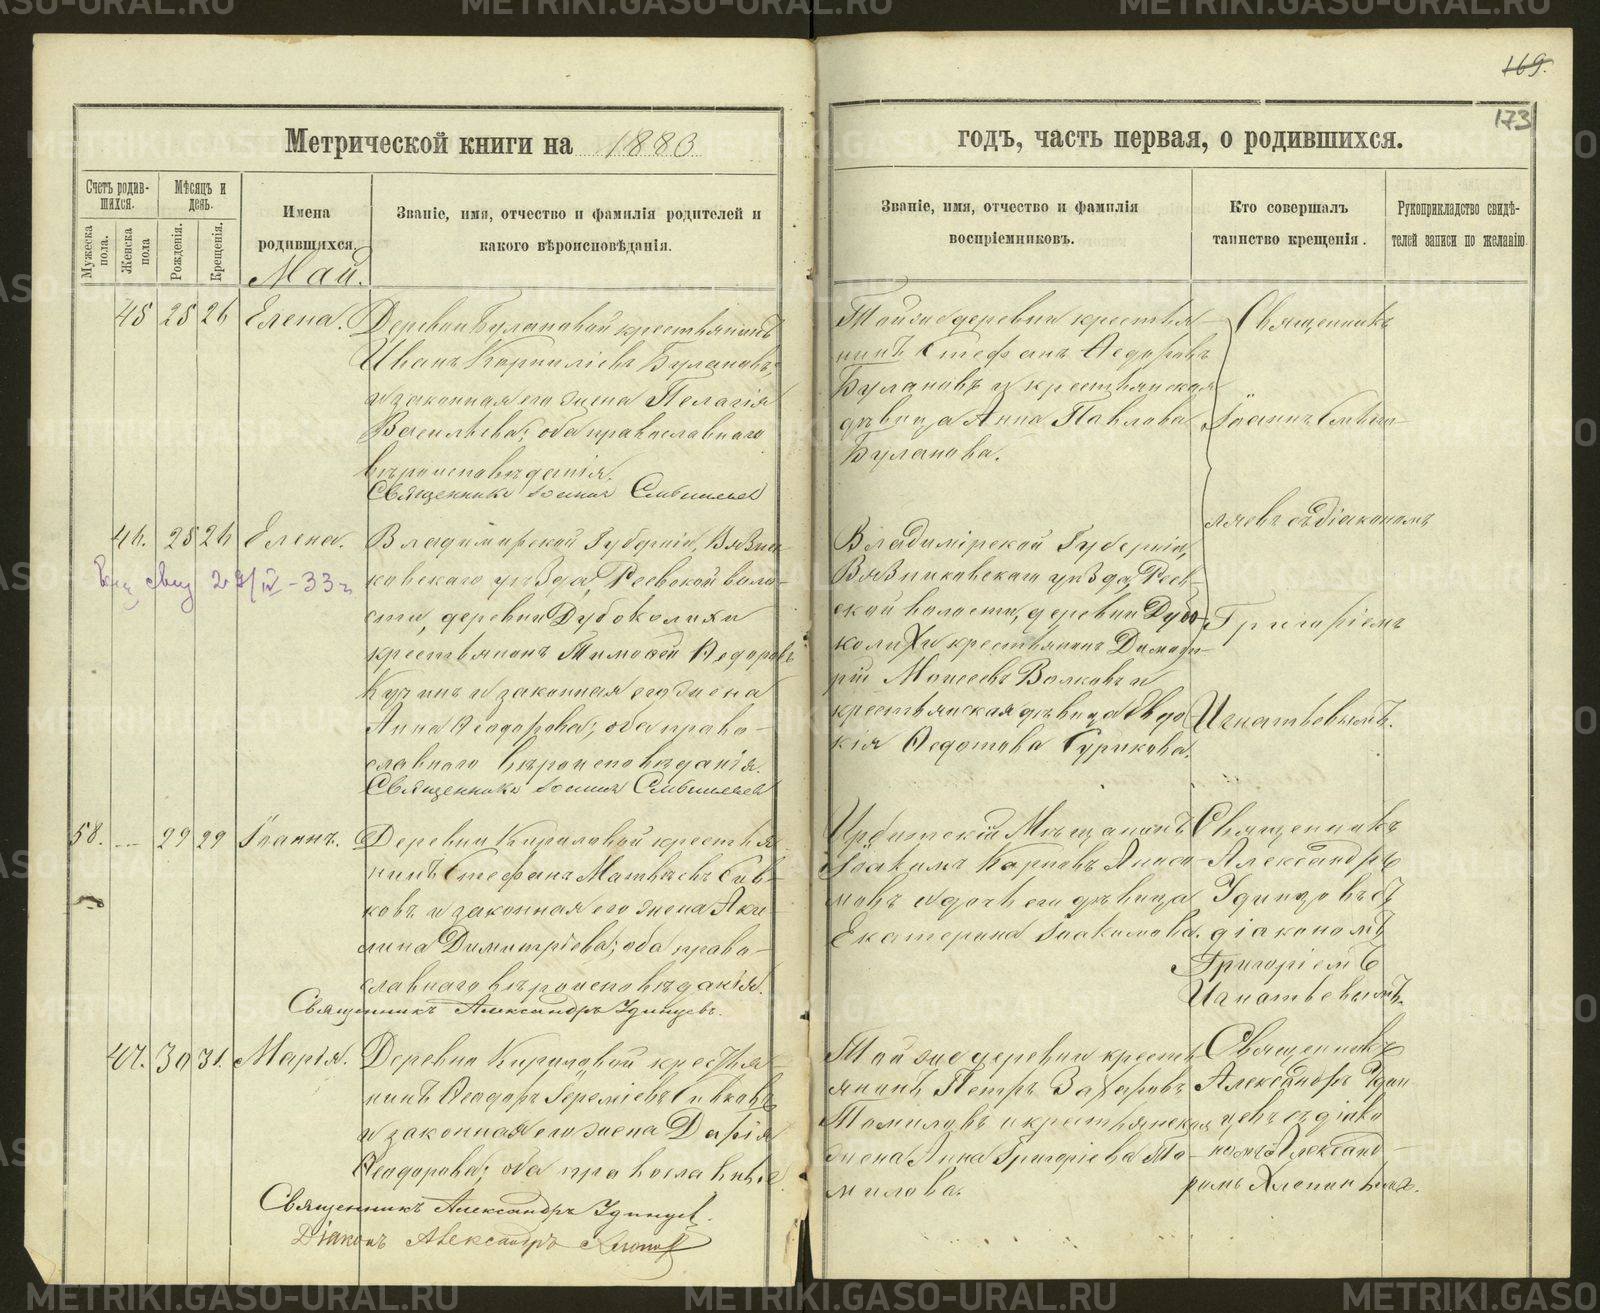 METRIKI.GASO-URAL.RU
169.
173
Метрической книги на 1880
годъ, часть первая, о родившихся.
Счетъ родив-
шихся.
Мѣсяцъ и
день.
Мужеска
пола.
Женска
пола
Рожденія.
Крещенія.
Имена
родившихся.
Званіе, имя, отчество и фамилія родителей и
какого вѣроисповѣданія.
Званіе, имя, отчество и фамилія
воспріемниковъ.
Кто совершалъ
таинство крещенія.
Рукоприкладство свидѣ-
телей записи по желанію.
Май.
45 25 26 Елена.
Деревни Булановой крестьянинъ
Иванъ Корниліевъ Булановъ,
и законная его жена Пелагія
Васильева; оба православнаго
вѣроисповѣданія.
Священникъ Іоаннъ
Тойже деревни крестья-
нинъ Стефанъ Ѳедоровъ
Булановъ и крестьянская
дѣвица Анна Павлова
Буланова.
Священникъ
Іоаннъ Смыш-
ляевъ съ діакономъ
Григоріемъ
Игнатьевымъ.
46. 25 26 Елена.
29/IV - 33 г
Владимирской Губерніи, Вязни-
ковскаго уѣзда, Рыевской воло-
сти, деревни Дубоколихи
крестьянинъ Тимоѳей Ѳедоровъ
и законная его жена
Анна Ѳеодорова; оба право-
славнаго вѣроисповѣданія.
Священникъ Іоаннъ
Владимірской Губерніи,
Вязниковскаго уѣзда,
ской волости, деревни Дубо-
колихи крестьянинъ Димит-
рій Моисеевъ Волковъ и
крестьянская дѣвица Евдо-
кія Ѳедотова Гурикова.
58. — 29 29 Іоаннъ.
Деревни Кириловой крестья-
нинъ Стефанъ Матвѣевъ Сив-
ковъ и законная его жена Аки-
лина Димитріева; оба право-
славнаго вѣроисповѣданія.
Священникъ Александръ Удинцевъ.
Ирбитскій Мѣщанинъ
Іоакимъ Карповъ Аниси-
мовъ и дочь его дѣвица
Екатерина Іоакимова.
Священникъ
Александръ
Удинцовъ съ
діакономъ
Григоріемъ
Игнатьевымъ.
47. 30 31. Марія.
Деревни Кириловой крестья-
нинъ Ѳеодоръ Іереміевъ Сивковъ
и законная его жена Дарія
Ѳеодорова; оба православные
Священникъ Александръ Удинцев.
Діаконъ Александръ
Тойже деревни кресть-
янинъ Петръ Захаровъ
Томиловъ и крестьянская
жена Анна Григоріева То-
милова.
Священникъ
Александръ Удин-
цевъ съ діако
номъ Александ-
ромъ Хлопинымъ.